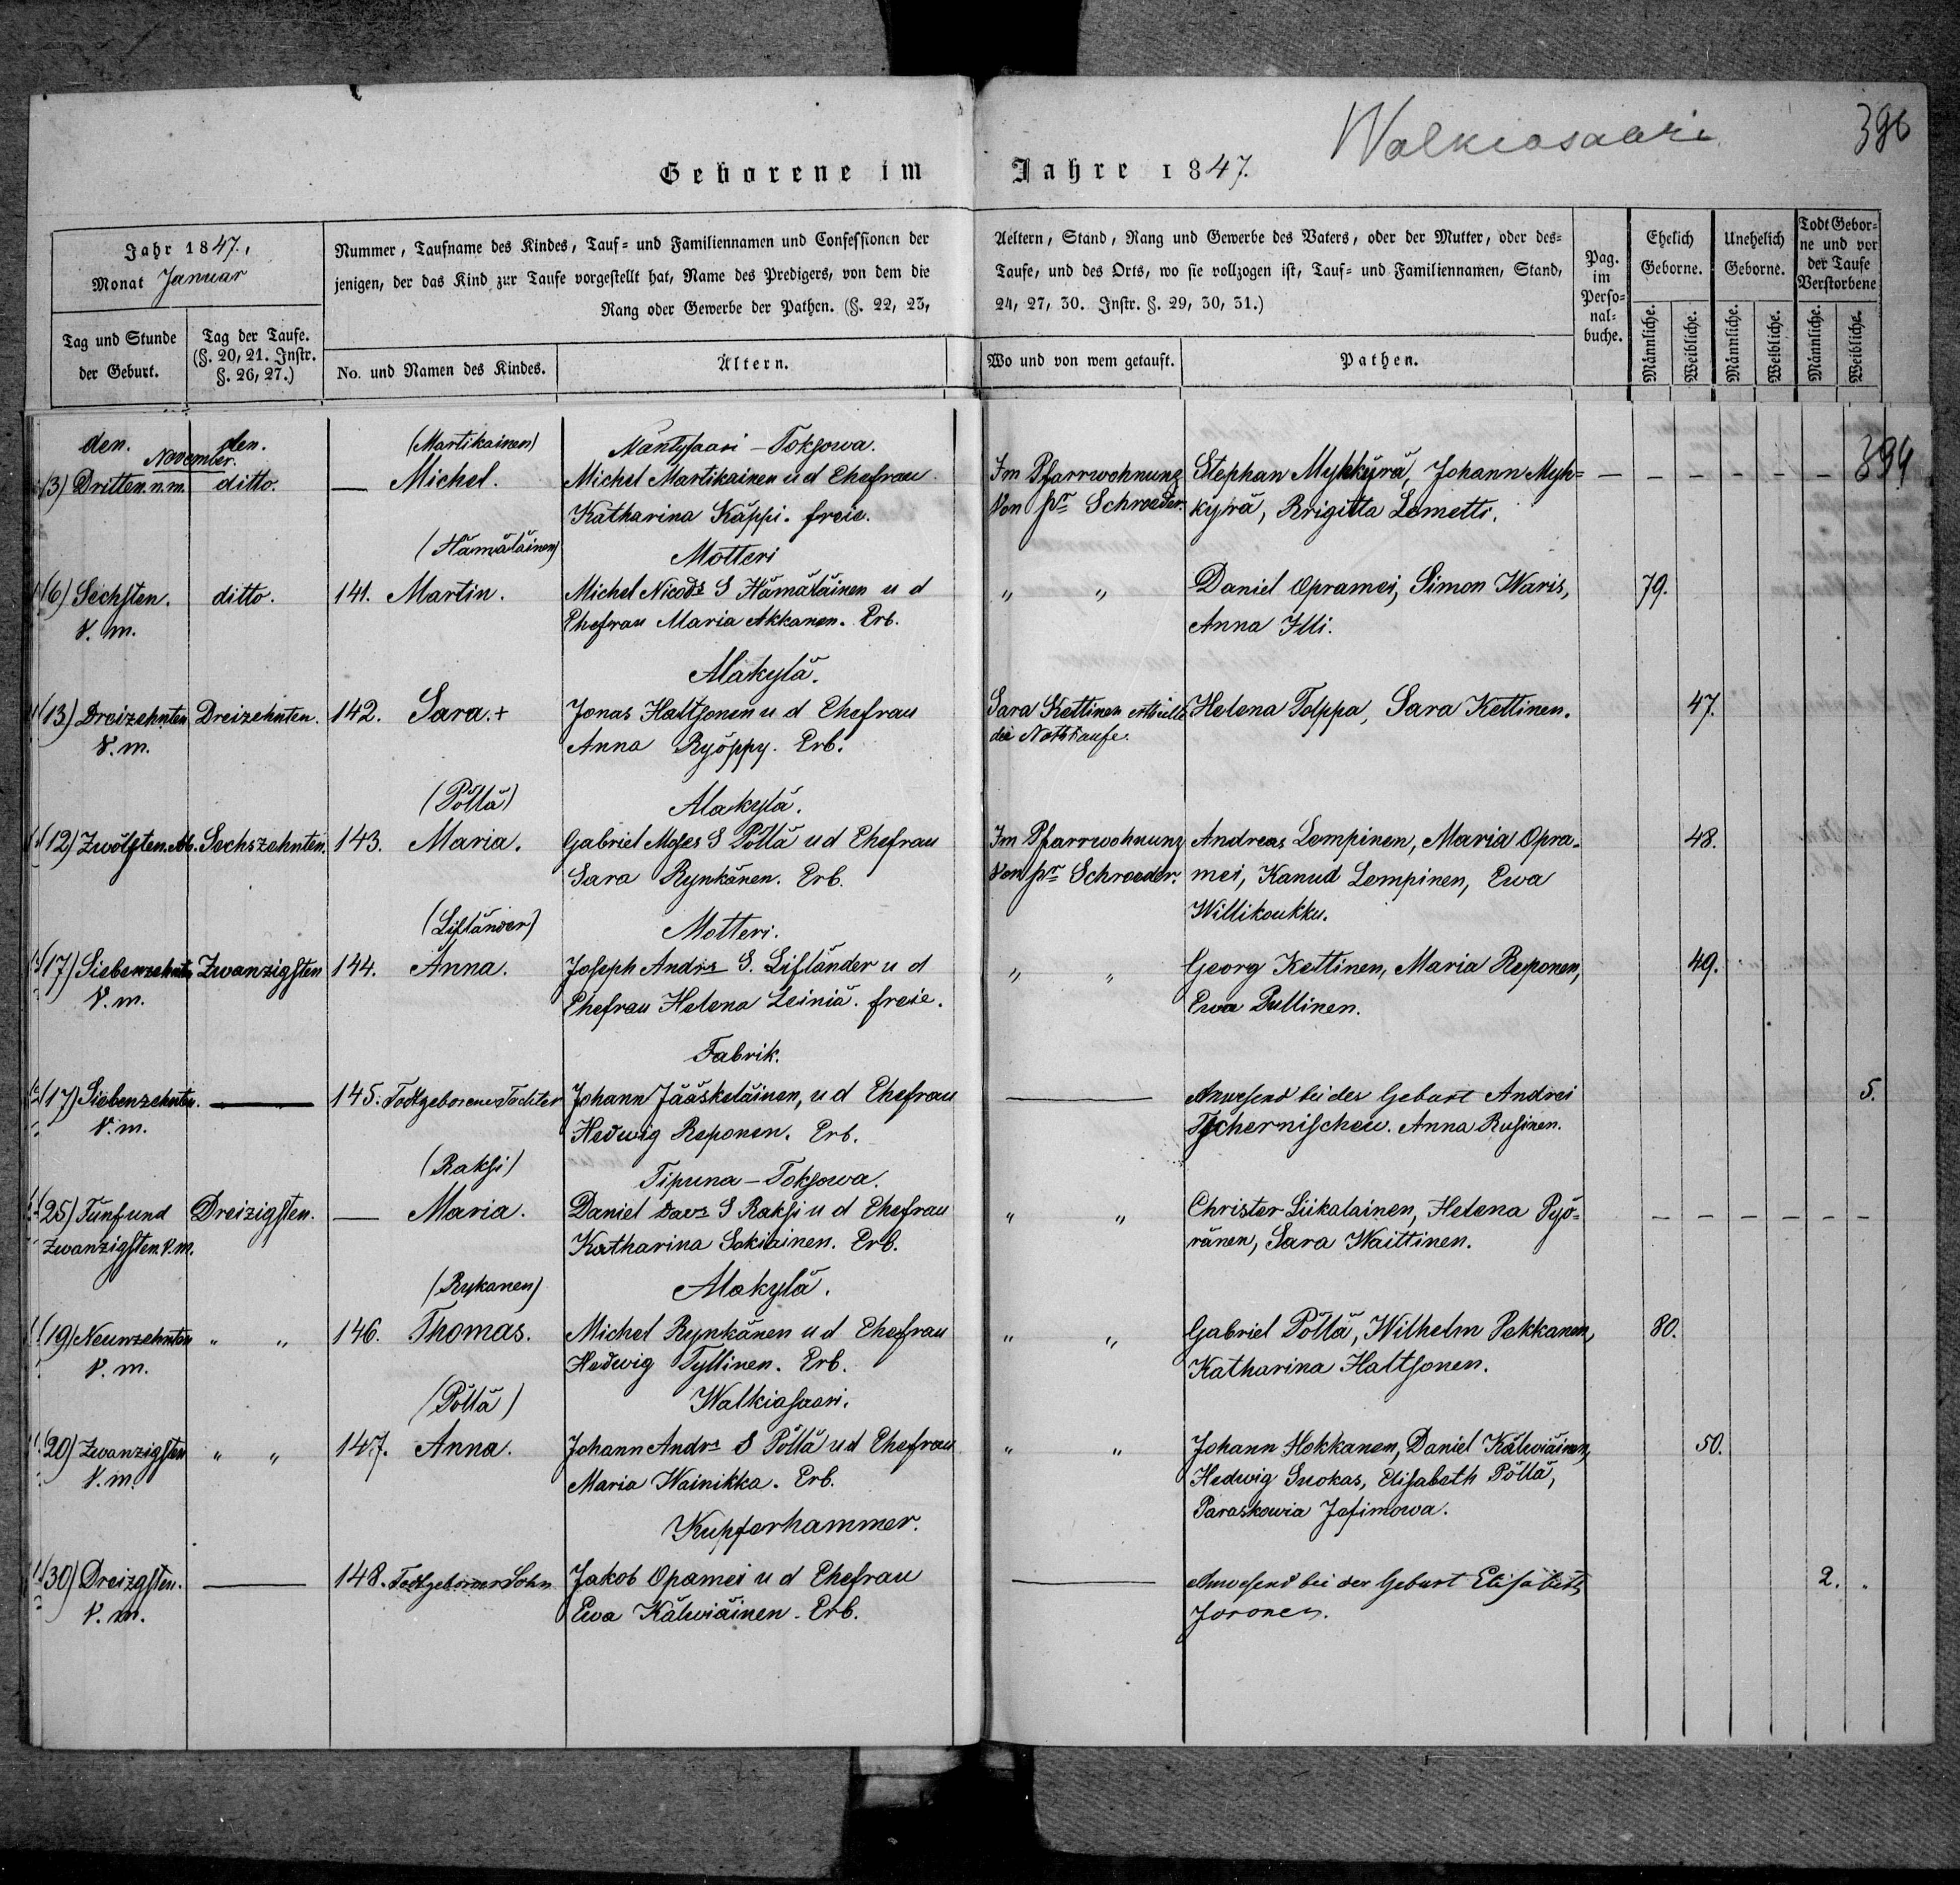 Walkiasaari
396
Geborene im Jahre 1847.
Jahr 1847.,
Monat Januar
Nummer, Taufname des Kindes, Tauf= und Familiennamen und Confessionen der
jenigen, der das Kind zur Taufe vorgestellt hat, Name des Predigers, von dem die
Rang oder Gewerbe der Pathen. (§. 22, 23,
Aeltern, Stand, Rang und Gewerbe des Vaters, oder der Mutter, oder des=
Taufe, und des Orts, wo sie vollzogen ist, Tauf= und Familiennamen, Stand,
24, 27, 30. Instr. §. 29, 30, 31.)
Pag. im Perso= nal= buche.
Ehelich Geborne.
Unehelich Geborne.
Todt Gebor= ne und vor der Taufe Verstorbene
Tag und Stunde der Geburt.
Tag der Taufe. (§. 20, 21. Instr. §. 26, 27.)
No. und Namen des Kindes.
Ältern.
Wo und von wem getauft.
Pathen.
Männliche. Weibliche. Männliche. Weibliche. Männliche. Weibliche.
den. November. den.
(Martikainen) Mäntysaari – Toksowa.
394
(3) Dritten n.m. ditto. — Michel. Michel Martikainen u d Ehefrau Im Pfarrwohnung Stephan Mykkyrä, Johann Myk=
Katharina Käppi. freie. Von pr Schroeder. kyrä, Brigitta Lometti.
(Hämäläinen) Motteri
(6) Sechsten. ditto. 141. Martin. Michel Nicods S Hämäläinen u d " " Daniel Opramei, Simon Waris, 79.
V. m. Ehefrau Maria Akkanen. Erb. Anna Illi.
Alakylä.
(13) Dreizehnten Dreizehnten. 142. Sara. + Jonas Hattsonen u d Ehefrau Sara Kettinen Helena Tolppa, Sara Kettinen. 47.
V. m. Anna Ryöppy. Erb. die Nothtaufe.
(Pöllä) Alakylä.
(12) Zwölften. Ab. Sechszehnten. 143. Maria. Gabriel Moses S Pöllä u d Ehefrau Im Pfarrwohnung Andreas Lempinen, Maria Opra= 48.
Sara Rynkänen. Erb. Von pr Schroeder. mei, Kanud Lempinen, Ewa
Willikoukku.
(Lifländer) Motteri.
(17) Siebenzehnten Zwanzigsten 144. Anna. Joseph Andrs S. Lifländer u d " " Georg Kettinen, Maria Reponen, 49.
V. m. Ehefrau Helena Leiniä. freie. Ewa Pullinen.
Fabrik.
(17) Siebenzehnten. — 145. Todtgeborene Tochter Johann Jääskeläinen, u d Ehefrau — Anwesend bei der Geburt Andrei 5.
V. m. Hedwig Reponen. Erb. Tschernischew. Anna Rusinen.
(Raksi) Tipuna – Toksowa.
(25) Fünfund Dreizigsten. — Maria. Daniel Davs S Raksi u d Ehefrau " " Christer Liikalainen, Helena Pyö=
zwanzigsten V.m. Katharina Sokiainen. Erb. ränen, Sara Waittinen.
(Rykanen) Alakylä.
(19) Neunzehnten " " 146. Thomas. Michel Rynkänen u d Ehefrau " " Gabriel Pöllä, Wilhelm Pekkanen, 80.
V. m. Hedwig Tyllinen. Erb. Katharina Hattsonen.
(Pöllä) Walkiasaari.
(20) Zwanzigsten " " 147. Anna. Johann Andrs S Pöllä u d Ehefrau " " Johann Hokkanen, Daniel Kälwiäinen, 50.
V. m. Maria Wainikka. Erb. Hedwig Suokas, Elisabeth Pöllä,
Paraskowia Jefimowa.
Kupferhammer.
(30) Dreizgsten. — 148. Todtgeborner Sohn Jakob Opamei u d Ehefrau — Anwesend bei der Geburt Elisabeth 2.
V. m. Ewa Kälwiäinen. Erb. Joronen.